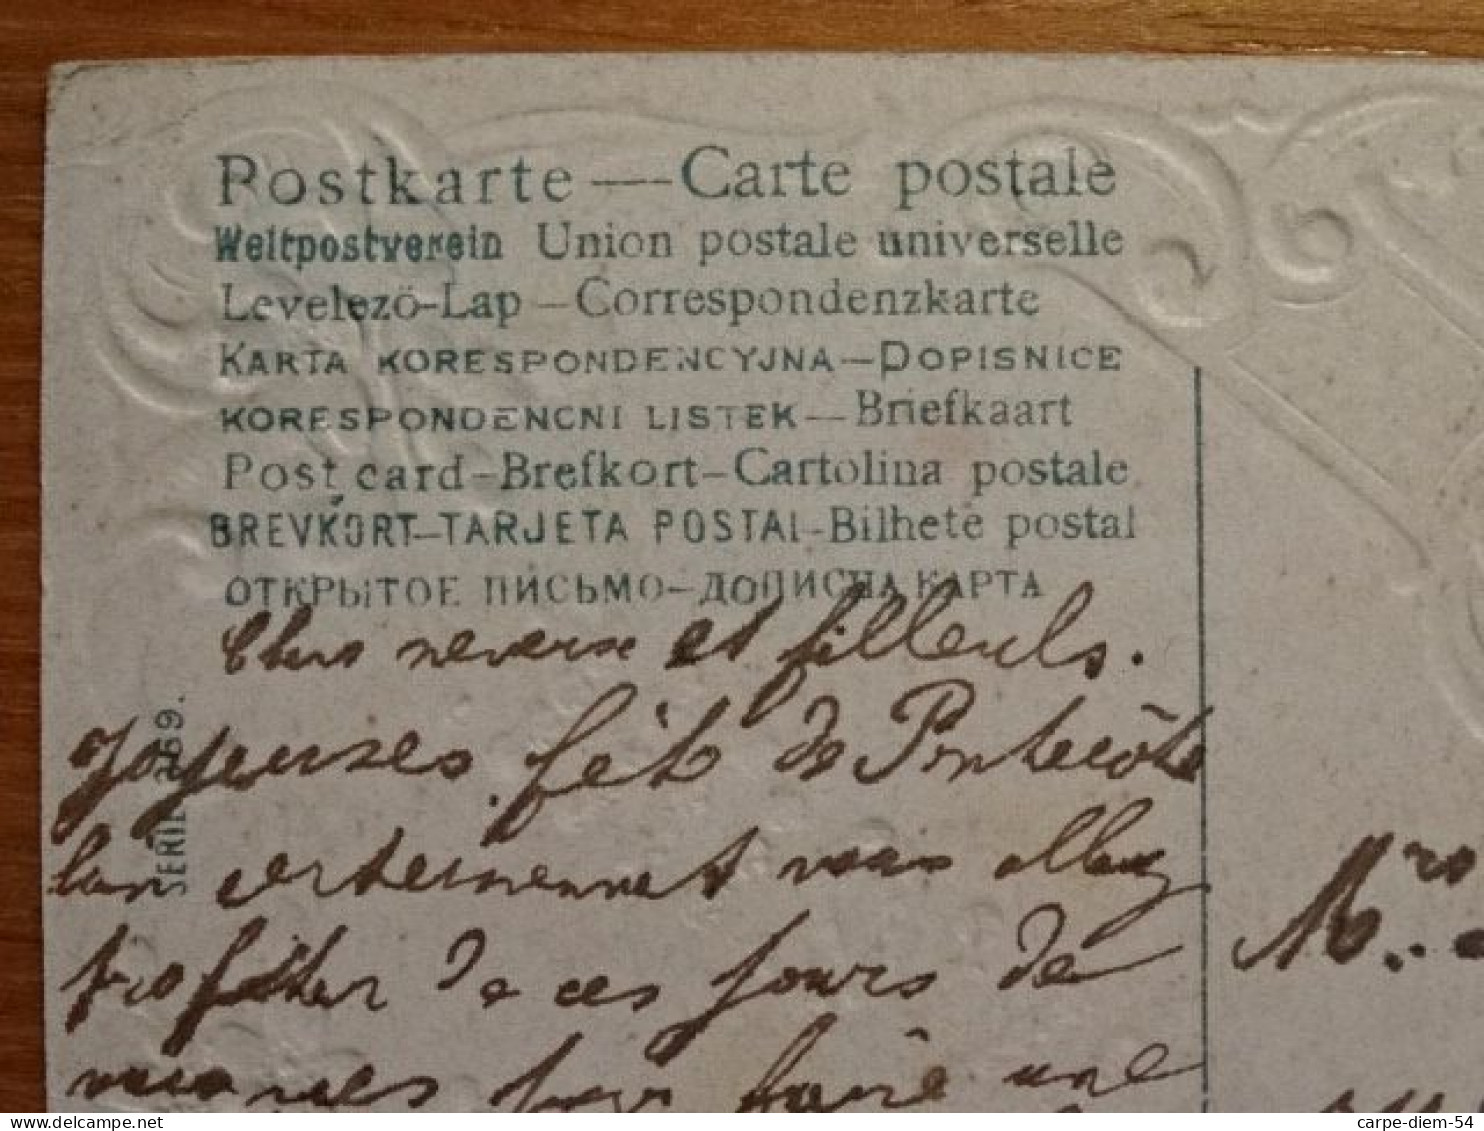 Postkarte — Carte postale
Weltpostverein Union postale universelle
Levelező-Lap — Correspondenzkarte
KARTA KORESPONDENCYJNA — DOPISNICE
KORESPONDENCNI LISTEK — Briefkaart
Post card — Brefkort — Cartolina postale
BREVKORT — TARJETA POSTAL — Bilhete postal
ОТКРЫТОЕ ПИСЬМО — ДОПИСНА КАРТА
Chers et filleuls.
Joyeuses fête de Pentecôte
vous allez
profiter de ces jours de
faire une
SERIE 69.
Mro
delcampe.net
carpe-diem-54